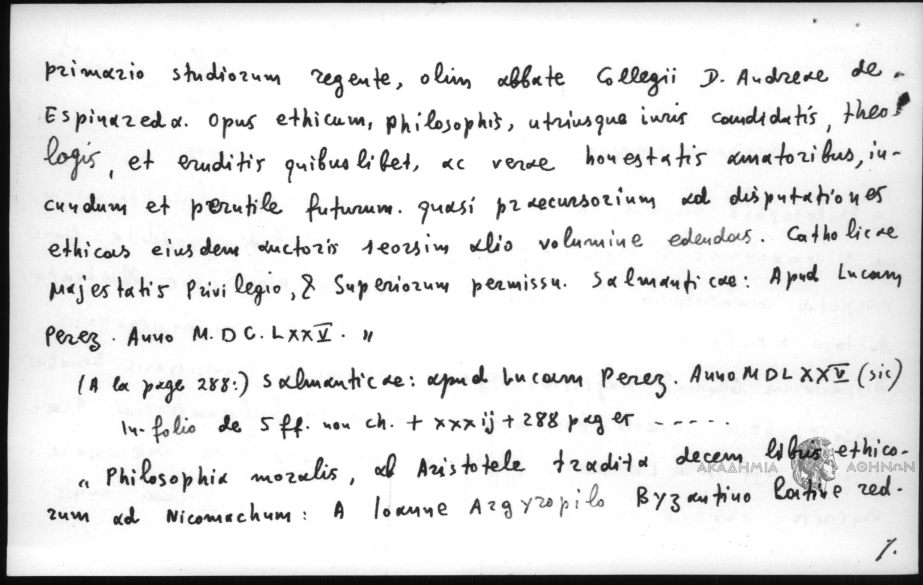 primario studiorum regente, olim abbate Collegii D. Andreae de
Espinareda. Opus ethicum, philosophis, utriusque iuris candidatis, theo-
logis, et eruditis quibuslibet, ac verae honestatis amatoribus, iu-
cundum et perutile futurum. quasi praecursorium ad disputationes
ethicas eiusdem auctoris seorsim alio volumine edendas. Catholicae
Majestatis Privilegio, & Superiorum permissu. Salmanticae: Apud Lucam
Perez. Anno M.DC.LXXV. "
(A la page 288:) Salmanticae: apud Lucam Perez. Anno MDLXXV (sic)
In-folio de 5 ff. non ch. + xxxij + 288 pages - - - - -
" Philosophia moralis, ab Aristotele tradita decem libris ethico-
ΑΚΑΔΗΜΙΑ ΑΘΗΝΩΝ
rum ad Nicomachum: A Ioanne Argyropilo Byzantino latine red-